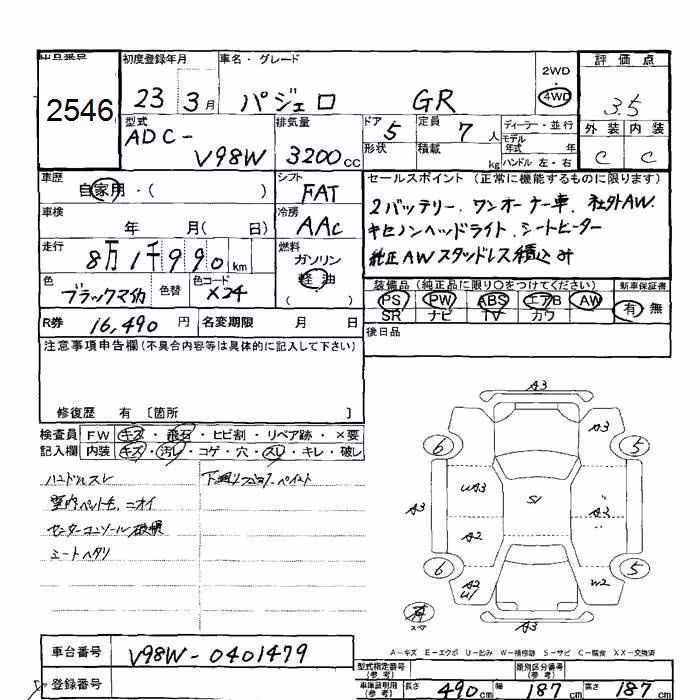 出品番号 初度登録年月 車名・グレード 2WD 評価点
2546 23 3月 パジェロ GR 4WD 3.5
型式 排気量 ドア 5 定員 7人 ディーラー・並行 外装 内装
ADC- モデル年式 年
V98W 3200cc 形状 積載 kg ハンドル 左・右 C C
車歴 自家用・( ) シフト FAT セールスポイント(正常に機能するものに限ります)
車検 年 月( 日) 冷房 AAC 2バッテリー、ワンオーナー車、社外AW、
キセノンヘッドライト、シートヒーター
走行 8万1千990km 燃料 ガソリン 軽油 ( ) 純正AWスタッドレス積込み
色 ブラックマイカ 色替 色コード X24 装備品(純正品に限り○をつけてください) 新車保証書
PS PW ABS エアB AW 有 無
R券 16,490円 名変期限 月 日 SR ナビ TV カワ
注意事項申告欄(不具合内容等は具体的に記入して下さい) 後日品
修復歴 有 〔箇所 〕
検査員 FW キズ・飛石・ヒビ割・リペア跡・×要
記入欄 内装 キズ・汚レ・コゲ・穴・スレ・キレ・破レ
ハンドルスレ
室内ペット毛、ニオイ
センターコンソール破損
シートヘタリ
A3
A3
6 5
A3 UA3 S1 A3 A3
A2
6 5
A2 U1 W2
A3
A-キズ E-エクボ U-凹み W-補修跡 S-サビ C-腐食 XX-交換済
車台番号 V98W-0401479
型式指定番号(参考) 類別区分番号(参考)
登録番号 車庫証明用(参考) 長さ 490cm 幅 187cm 高さ 187cm